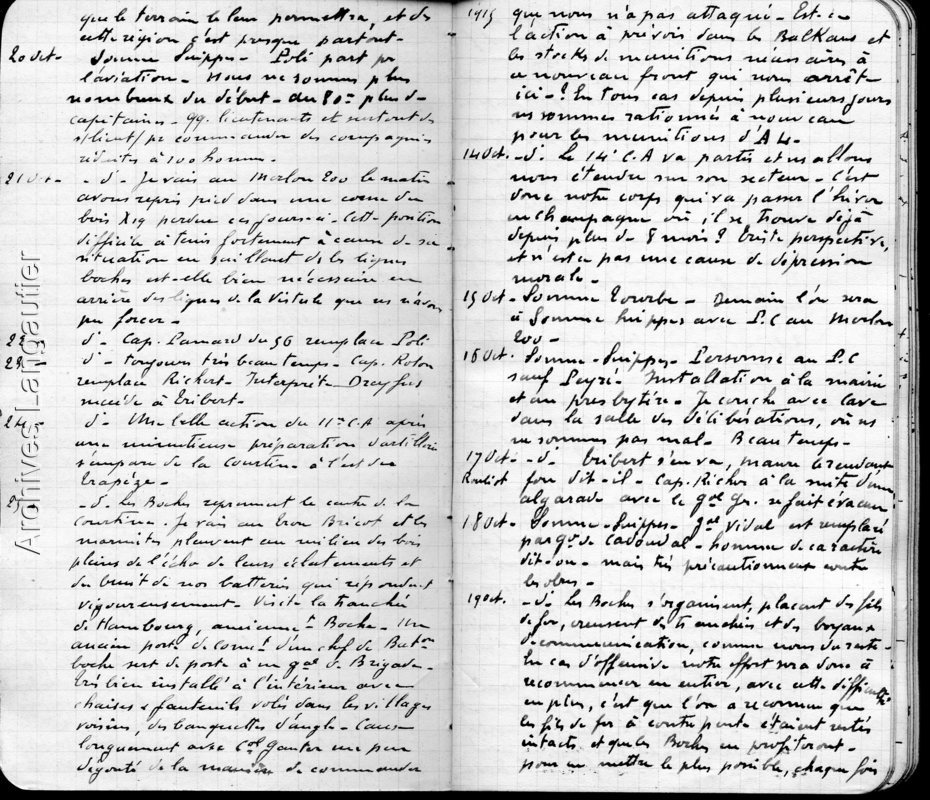 que le terrain le leur permettra, et des
cette région c'est presque partout -
20 Oct - Somme Suippes - Poli part pr
l'aviation - Nous ne sommes plus
nombreux du début - au 80e plus de
capitaines - qq. lieutenants et surtout des
s/lieut/ pr commander des compagnies
réduites à 100 hommes -
21 Oct - - d° - Je vais au Merlon 200 le matin
avons repris pied dans une corne du
bois X19 perdue ces jours-ci - Cette position
difficile à tenir fortement à cause de sa
situation en saillant ds les lignes
boches est-elle bien nécessaire en
arrière des lignes de la Vistule que ns n'avons
pu forcer -
22 - d° - Cap. Lamard du 56 remplace Poli
23 - d° - toujours très beau temps - Cap. Roton
remplace Richert - Interprète Dreyfus
succède à Eribert -
24 - d° - Une belle action du 11e C.A après
une minutieuse préparation d'artillerie
s'empare de la Courtine à l'est du
trapèze -
25 - d° les Boches reprennent le centre de la
courtine. Je vais au trou Bricot et les
marmites pleuvent au milieu des bois
pleins de l'écho de leurs éclatements et
du bruit de nos batteries qui répondent
vigoureusement - Visite la tranchée
de Hambourg, anciennet Boche - Un
ancien poste de comt d'un chef de Baton
boche sert de poste à un gal de Brigade -
très bien installé à l'intérieur avec
chaises & fauteuils volés dans les villages
voisins, des banquettes d'angle - Cause
longuement avec Col Gautier un peu
dégouté de la manière de commander
Archives Langautier
1915 que nous n'a pas attaqué - Est-ce
l'action à prévoir dans les Balkans et
les stocks de munitions nécessaires à
ce nouveau front qui nous arrête
ici - ? En tous cas depuis plusieurs jours
ns sommes rationnés à nouveau
pour les munitions d'A L -
14 Oct. - d° Le 14e C.A va partir et ns allons
nous étendre sur son secteur - C'est
donc notre corps qui va passer l'hiver
en Champagne où il se trouve déjà
depuis plus de 8 mois ? Triste perspective,
et n'est-ce pas une cause de dépression
morale -
15 Oct - Somme Tourbe - Demain l'on sera
à Somme Suippes avec P.C au Merlon
200 -
16 Oct. Somme - Suippes - Personne au P.C
sauf Peyré - Installation à la mairie
et au presbytère - Je couche avec Cave
dans la salle des délibérations, où ns
ne sommes pas mal - Beau temps -
17 Oct - - d° - Eribert s'en va, maure le rendant
fou dit-il - Cap. Richer à la suite d'une
algarade avec le gal Gr. se fait évacuer
18 Oct - Somme - Suippes - gal Vidal est remplacé
par gal de Cadoudal - homme de caractère
dit-on - mais très précautionneux contre
les obus -
19 Oct. - d° - Les Boches s'organisent, placent des fils
de fer, creusent des tranchées et des boyaux
de communication, comme nous du reste -
En cas d'offensive notre effort sera donc à
recommencer en entier, avec cette difficulté
en plus, c'est que l'on a reconnu que
les fils de fer à contre pente étaient restés
intacts et que les Boches en profiteront -
pour en mettre le plus possible, chaque fois